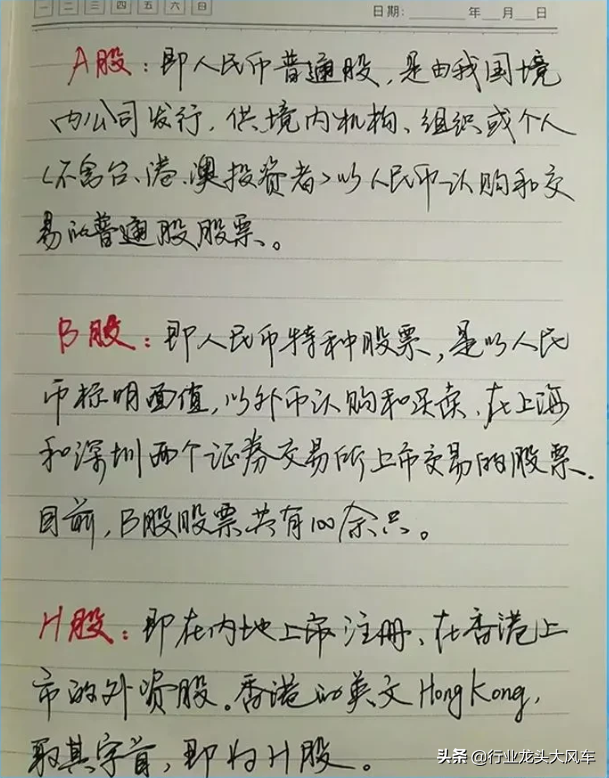 一 二 三 四 五 六 日 日期: 年 月 日
A股：即人民币普通股，是由我国境
内公司发行，供境内机构、组织或个人
(不含台、港、澳投资者)以人民币认购和交
易的普通股股票。
B股：即人民币特种股票，是以人民
币标明面值，以外币认购和买卖，在上海
和深圳两个证券交易所上市交易的股票.
目前，B股股票共有100余只。
H股：即在内地上市注册、在香港上
市的外资股。香港的英文HongKong，
取其字首，即为H股。
头条 @行业龙头大风车